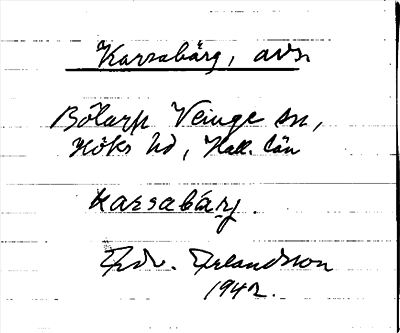 Karsabärg, avs.
Bölarp Veinge sn,
Höks hd, Hall. län
karsabárg.
Edv. Erlandsson
1942.